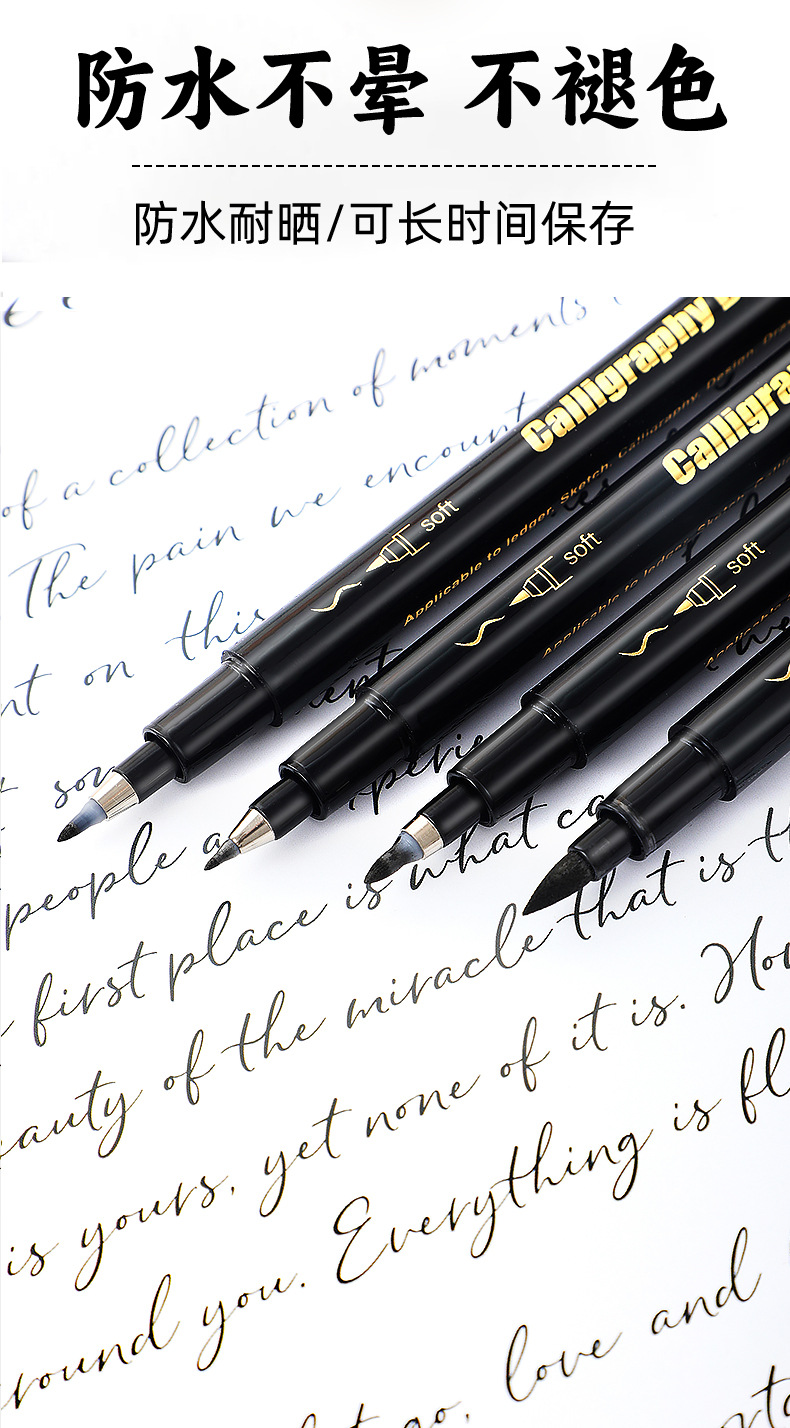 防水不晕 不褪色
防水耐晒/可长时间保存
of a collection of moments
Calligraphy
The pain we encount
Calligra
soft
Applicable to ledger, Sketch, Calligraphy, Design, Dra
soft
Applicable to ledger, Sketch,
soft
on this
people
first place is what ca
beauty of the miracle that is
is yours, yet none of it is.
around you. Everything is
go, love and